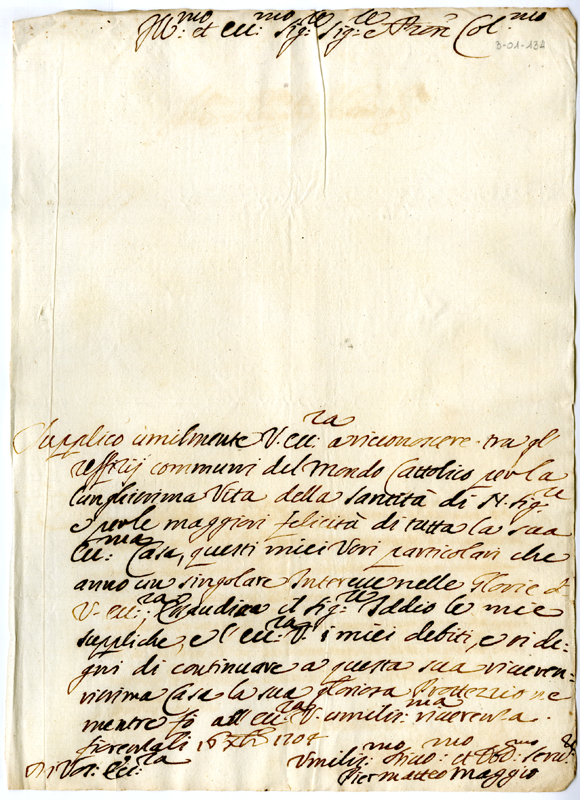 Ill:mo et ecc:mo Sig:re Sig:re e Pron Col:mo
3-01-134
Supplico umilmente V. ecc:za a riconoscere tra gl'
uffizij communi del Mondo Cattolico per la
lunghissima Vita della Santità di N. Sig:re
e per le maggiori felicità di tutta la sua
Ecc:ma Casa, questi miei Voti particolari che
anno un singolare Interesse nelle glorie di
V. ecc:za; esaudirà il Sig:re Iddio le mie
suppliche, e l'ecc:za V. i miei debiti, e si de-
gni di continuare a questa sua riveren-
tissima Casa la sua gloriosa Protezzione
mentre fò all'ecc:za V. umiliss:ma riverenza.
16 Xbre 1704
Di Vos: Ecc:za
Umiliss:mo Divo:mo et Obb:mo Serv:re
Pier matteo Maggio